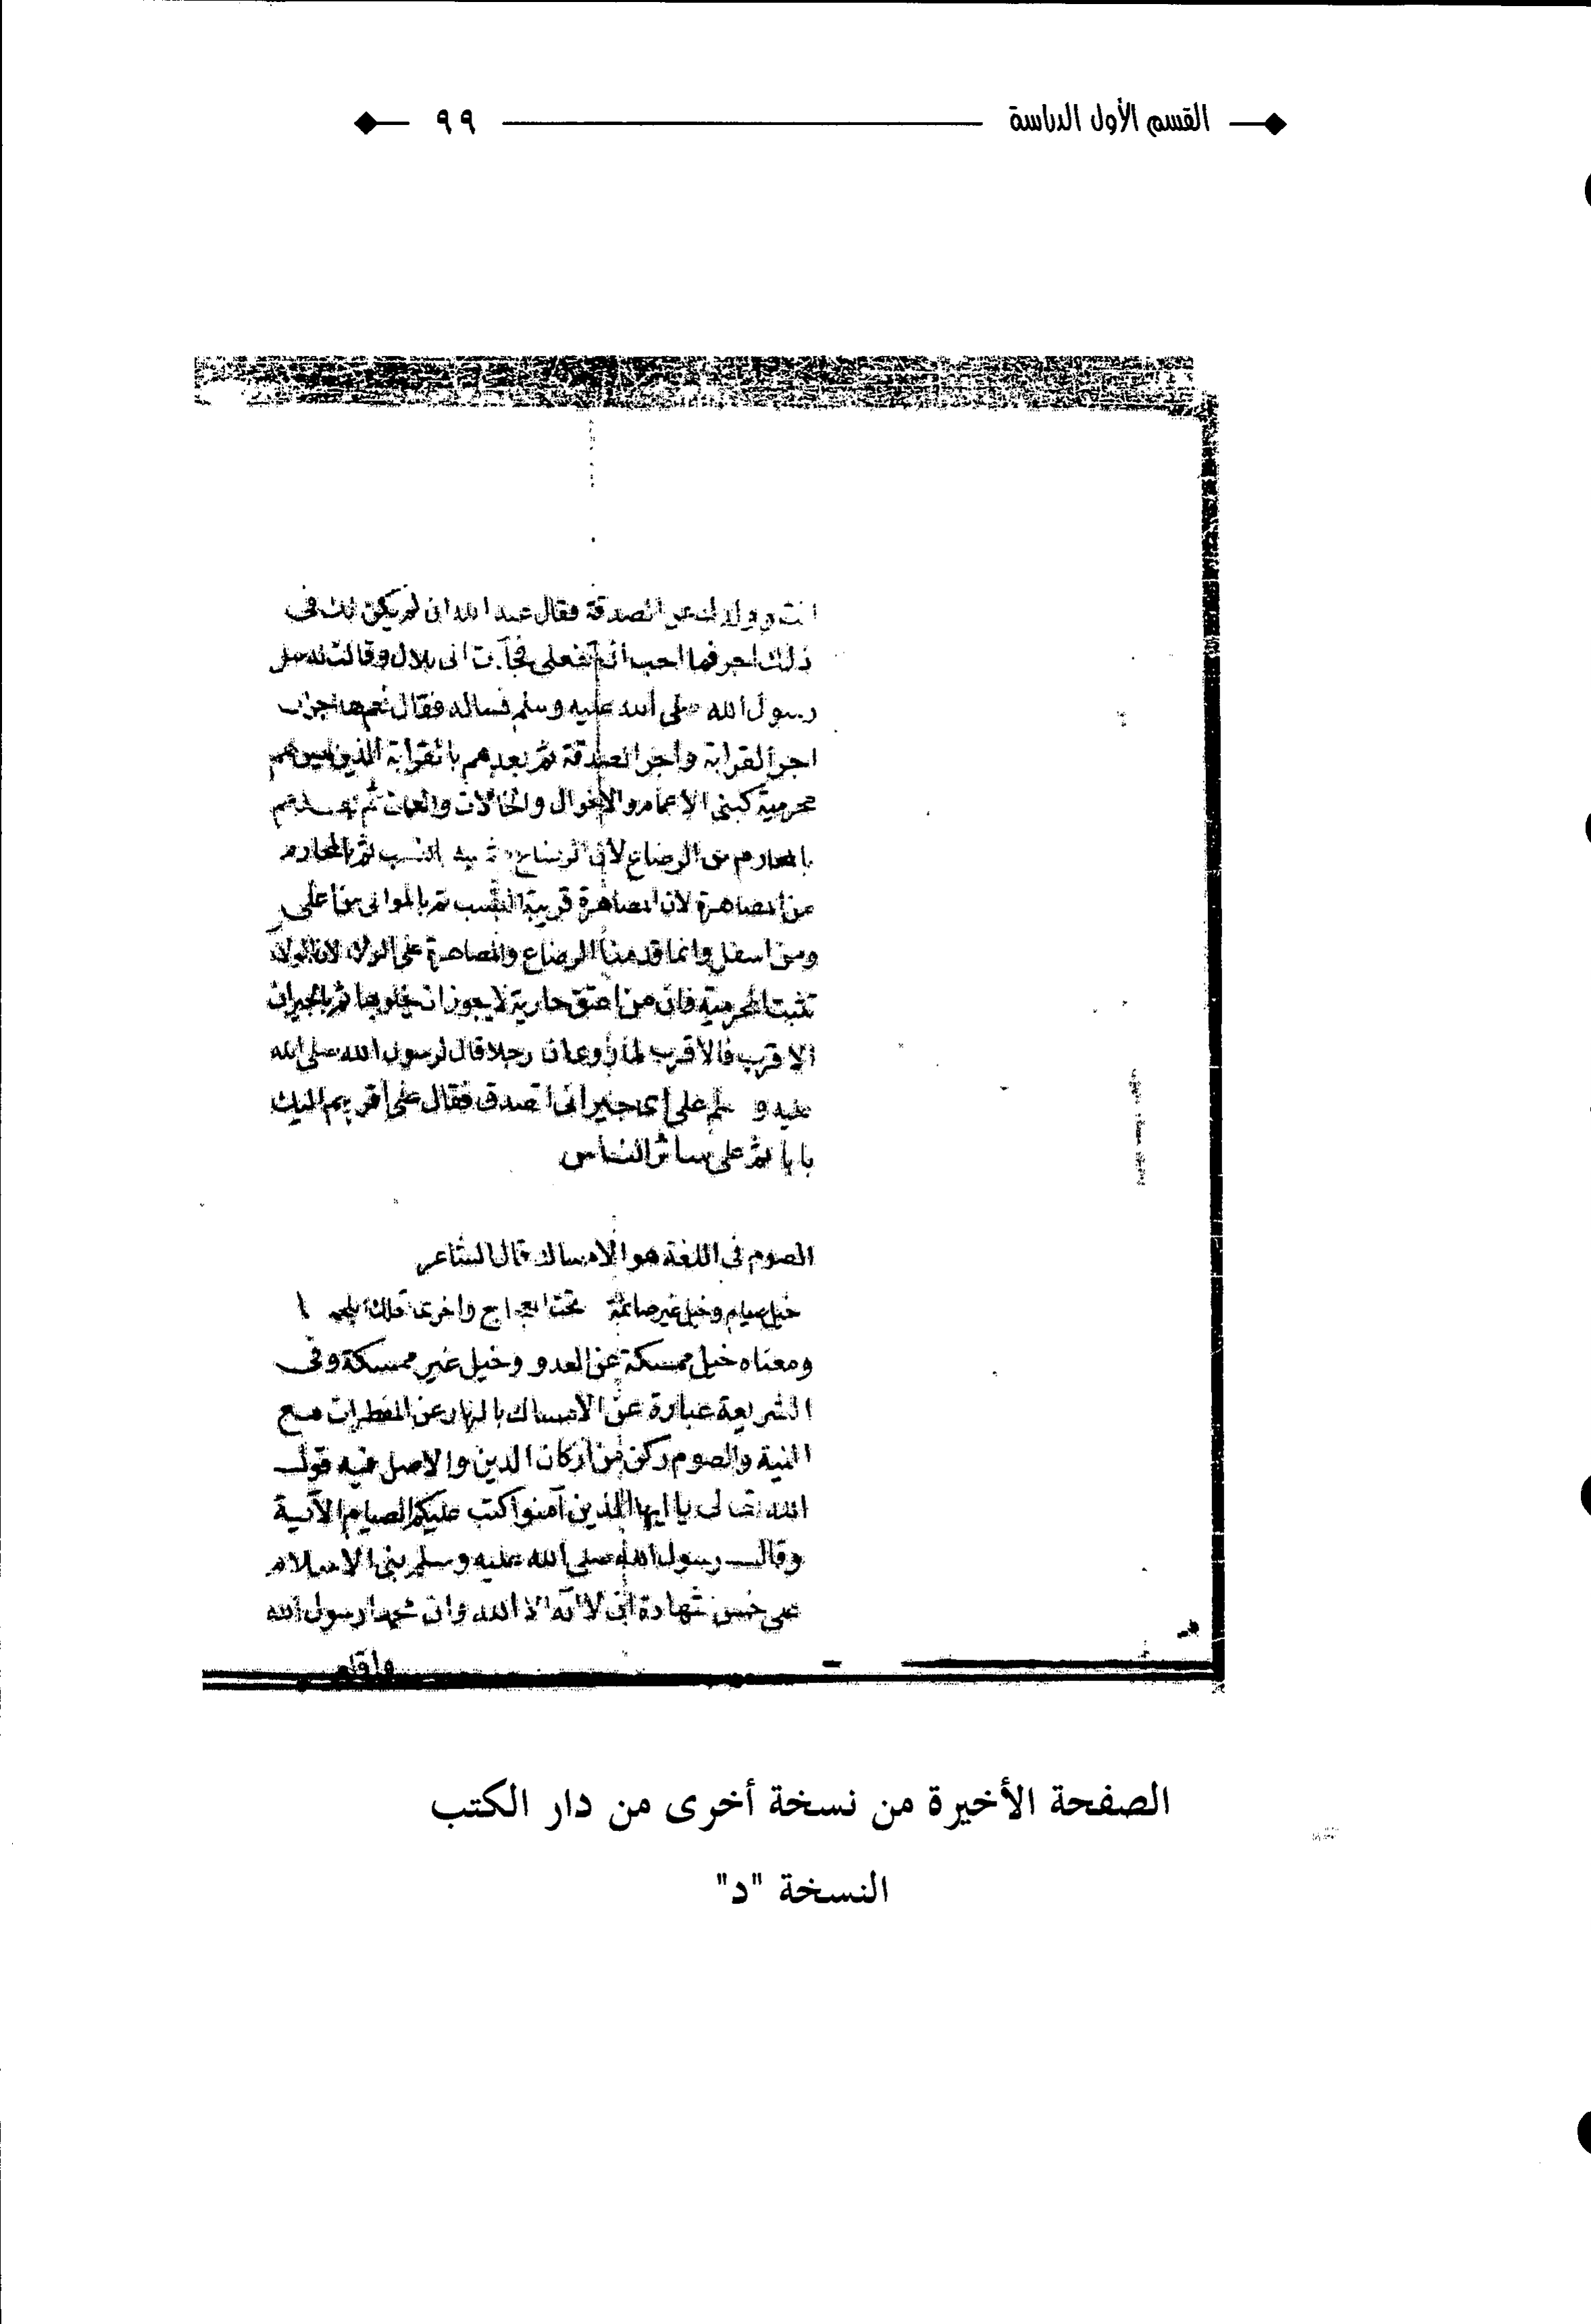 القسم الأول الدراسة ٩٩
انت وولدك عن الصدقة فقال عبد الله ان لم يكن لك فى
ذلك اجر فما احب ان تفعلى فجآت الى بلال وقالت له سل
رسول الله صلى الله عليه وسلم فساله فقال نعم لها اجران
اجر القرابة واجر الصدقة ثم بعدهم بالقرابة الذين ليس لهم
محرمية كبنى الاعمام والاخوال والخالات والعمات ثم بعدهم
بالمحارم من الرضاع لأن الرضاع النسب ثم بالمحارم
من المصاهرة لان المصاهرة قريبة النسب ثم بالموالى من اعلى
ومن اسفل وانما قدمنا الرضاع والمصاهرة على الولاء لان الولاء
تثبت المحرمية فان من اعتق جارية لا يجوز ان يخلو بها ثم بالجيران
الاقرب فالاقرب لما روى ان رجلا قال لرسول الله صلى الله
عليه و سلم على اى جيرانى اتصدق فقال على اقربهم اليك
بابا ثم على سائر الناس
الصوم فى اللغة هو الامساك قال الشاعر
خيل صيام وخيل غير صائمة تحت العجاج واخرى تعلك اللجما
ومعناه خيل ممسكة عن العدو وخيل غير ممسكة وفى
الشريعة عبارة عن الامساك بالنهار عن المفطرات مع
النية والصوم ركن من اركان الدين والاصل فيه قول
الله تعالى يا ايها الذين آمنوا كتب عليكم الصيام الآية
وقال رسول الله صلى الله عليه وسلم بنى الاسلام
على خمس شهادة ان لا اله الا الله وان محمدا رسول الله
واقام
الصفحة الأخيرة من نسخة أخرى من دار الكتب
النسخة "د"